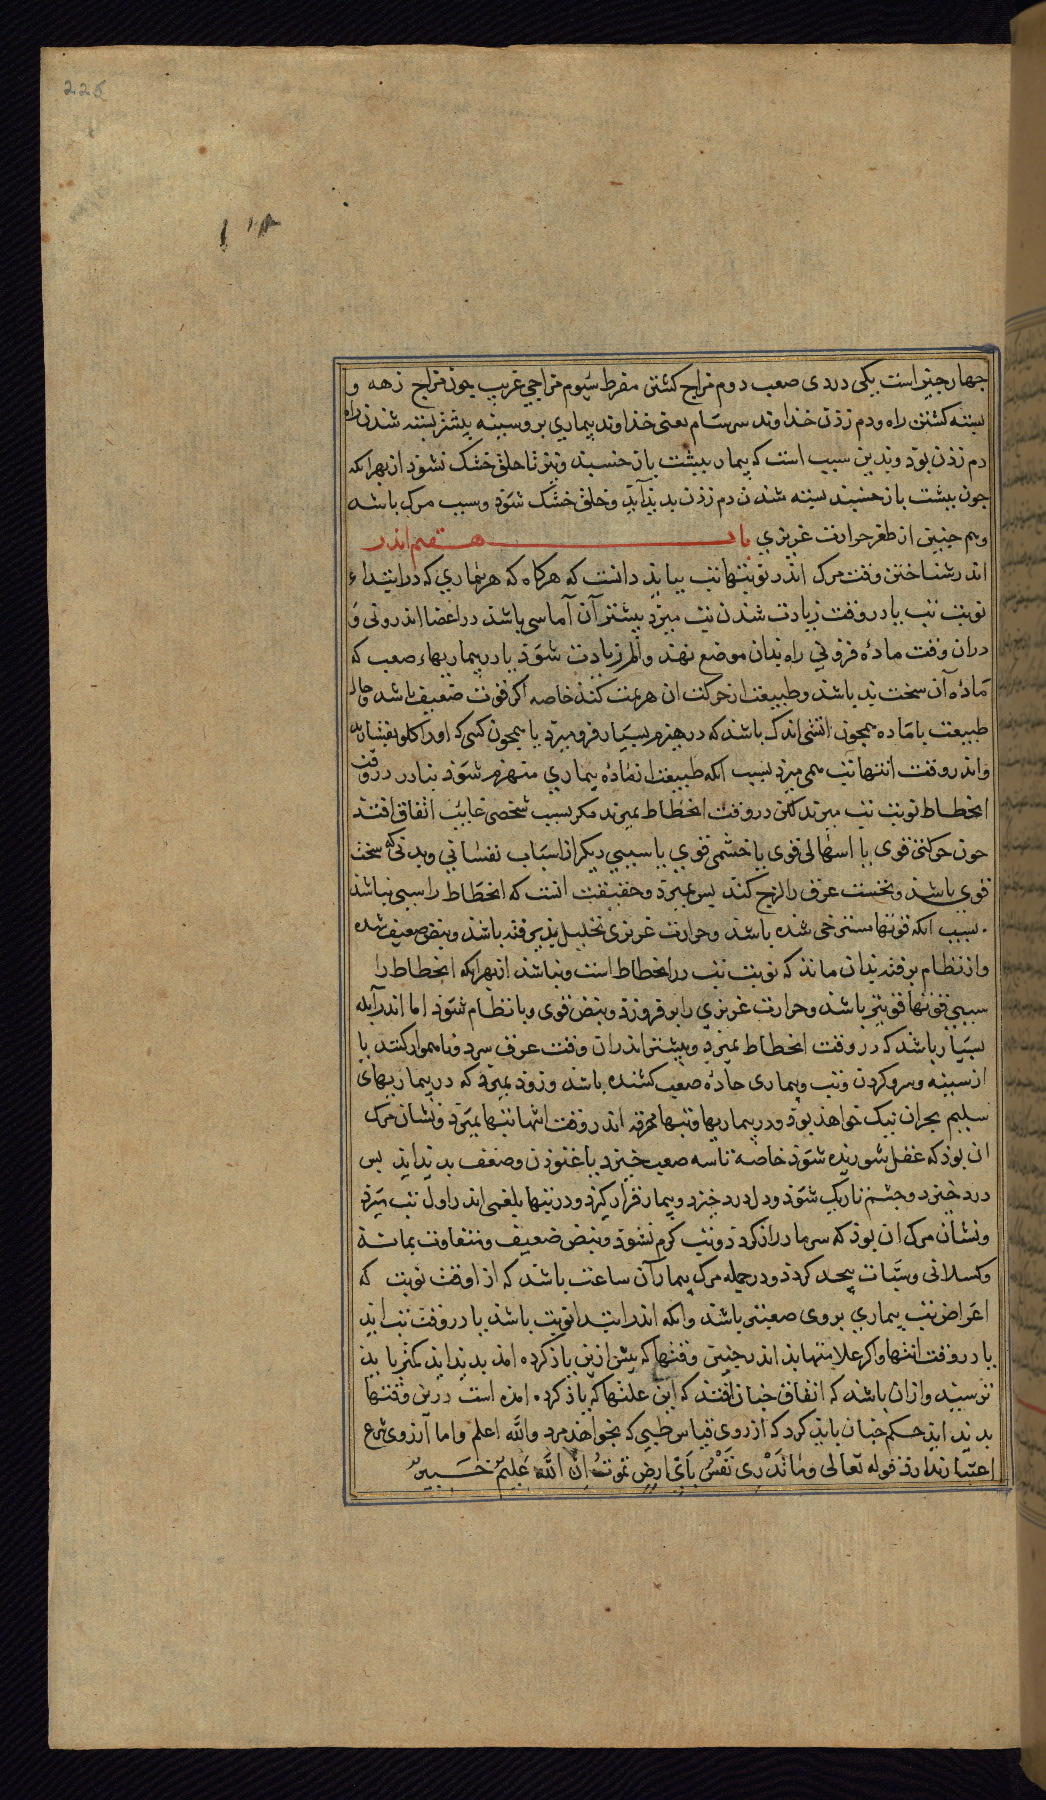 225
چهار چیز است یکی دردی صعب دوم مزاج کشتن مفرط سیوم مزاجی غریب چون مزاج زهر و
بسته کشتن راه و دم زدن خداوند سرسام یعنی خداوند بیماری برو سینه بیشتر بسته شدن راه
دم زدن بود و بدین سبب است که بیمار بپشت باز خسبد و تا حلق خشک نشود از بهر انکه
چون بپشت باز خسبد بسته شدن دم زدن بدید آید و حلق خشک شود و سبب مرک باشد
و هم جنین از طفر حرارت غریزی باب هفتم اندر
اندر شناختن وقت مرک اندر نوبتها تب بباید دانست که هرکاه که هر بیماری که در ابتداء
نوبت تب یا در وقت زیادت شدن تب میرد بیشتر آن آماسی باشد در اعضا اندرونی و
دران وقت مادهٔ فزونی راه بدان موضع نهد و الم زیادت شود یا در بیماریهاء صعب که
مادهٔ آن سخت بد باشد و طبیعت از حرکت ان هزیمت کند خاصه اکر قوت ضعیف باشد و حال
طبیعت با ماده همچون اتشی اندک باشد که در هیزم بسیار فرو میرد یا همچون کسی که او را کلو بفشارند
و اندر وقت انتها تب همی میرد بسبب انکه طبیعت از مادهٔ بیماری منهزم شود بنادر در وقت
انحطاط نوبت تب میرد لکن در وقت انحطاط نمیرد مکر بسبب شخصی غایب اتفاق افتد
چون حرکتی قوی یا اسهالی قوی یا خشمی قوی یا سببی دیکر از اسباب نفسانی و بدنی که سخت
قوی باشد و نخست عرق رالزج کند پس بمیرد و حقیقت انست که انحطاط را سببی نباشد
بسبب انکه قوتها مسترخی شده باشد و حرارت غریزی تحلیل پذیرفته باشد و نبض ضعیف شده
و از نظام برفته بدان ماند که نوبت تب در انحطاط است و نباشد از بهر انکه انحطاط را
سببی قوتها قویتر باشد و حرارت غریزی را بر فروزد و نبض قوی و با نظام شود اما اندر آبله
بسیار باشد که در وقت انحطاط بمیرد و بیشتر اندران وقت عرق سرد و ناهموار کند یا
از سینه و سر و کردن و تب و بیماری حاده صعب کشنده باشد و زود بمیرد که در بیماریهای
سلیم بحران نیک خواهد بود و در بیماریها و تبها محرقه اندر وقت انتها تبها بمیرد و نشان مرک
ان بود که عقل شوریده شود خاصه تاسه صعب خیزد یا غنودن و ضعف بدید اید پس
درد خیزد و چشم تاریک شود و دل درد خیزد و بیمار قرار کیرد و در تبها بلغمی اندر اول تب میرد
و نشان مرک ان بود که سرما دراز کردد و تب کرم نشود و نبض ضعیف و متفاوت بماند
و کسلانی و سبات بیحد کردد و در جمله مرک بیمار آن ساعت باشد که از اوقت نوبت که
اعراض تب بیماری بروی صعبتر باشد و انکه اندر ابتدا نوبت باشد یا در وقت تب اید
یا در وقت انتها و اکر علامتها بد اندر جنین وقتها که بیش ازین یاد کرده امد بدید اید کمتر باید
ترسید و ازان باشد که اتفاق جنان افتد که این علتها که یاد کرده امده است در این وقتها
بدید اید حکم جنان باید کرد که از روی قیاس طبیبی که بخواهد مرد والله اعلم و اما آنروی شرع
اعتبار ندارد قوله تعالی وما تَدْرِی نَفْسٌ بِأَیِّ ارضٍ تموتُ اِنَّ اللّهَ عَلِیمٌ خَبِیرٌ